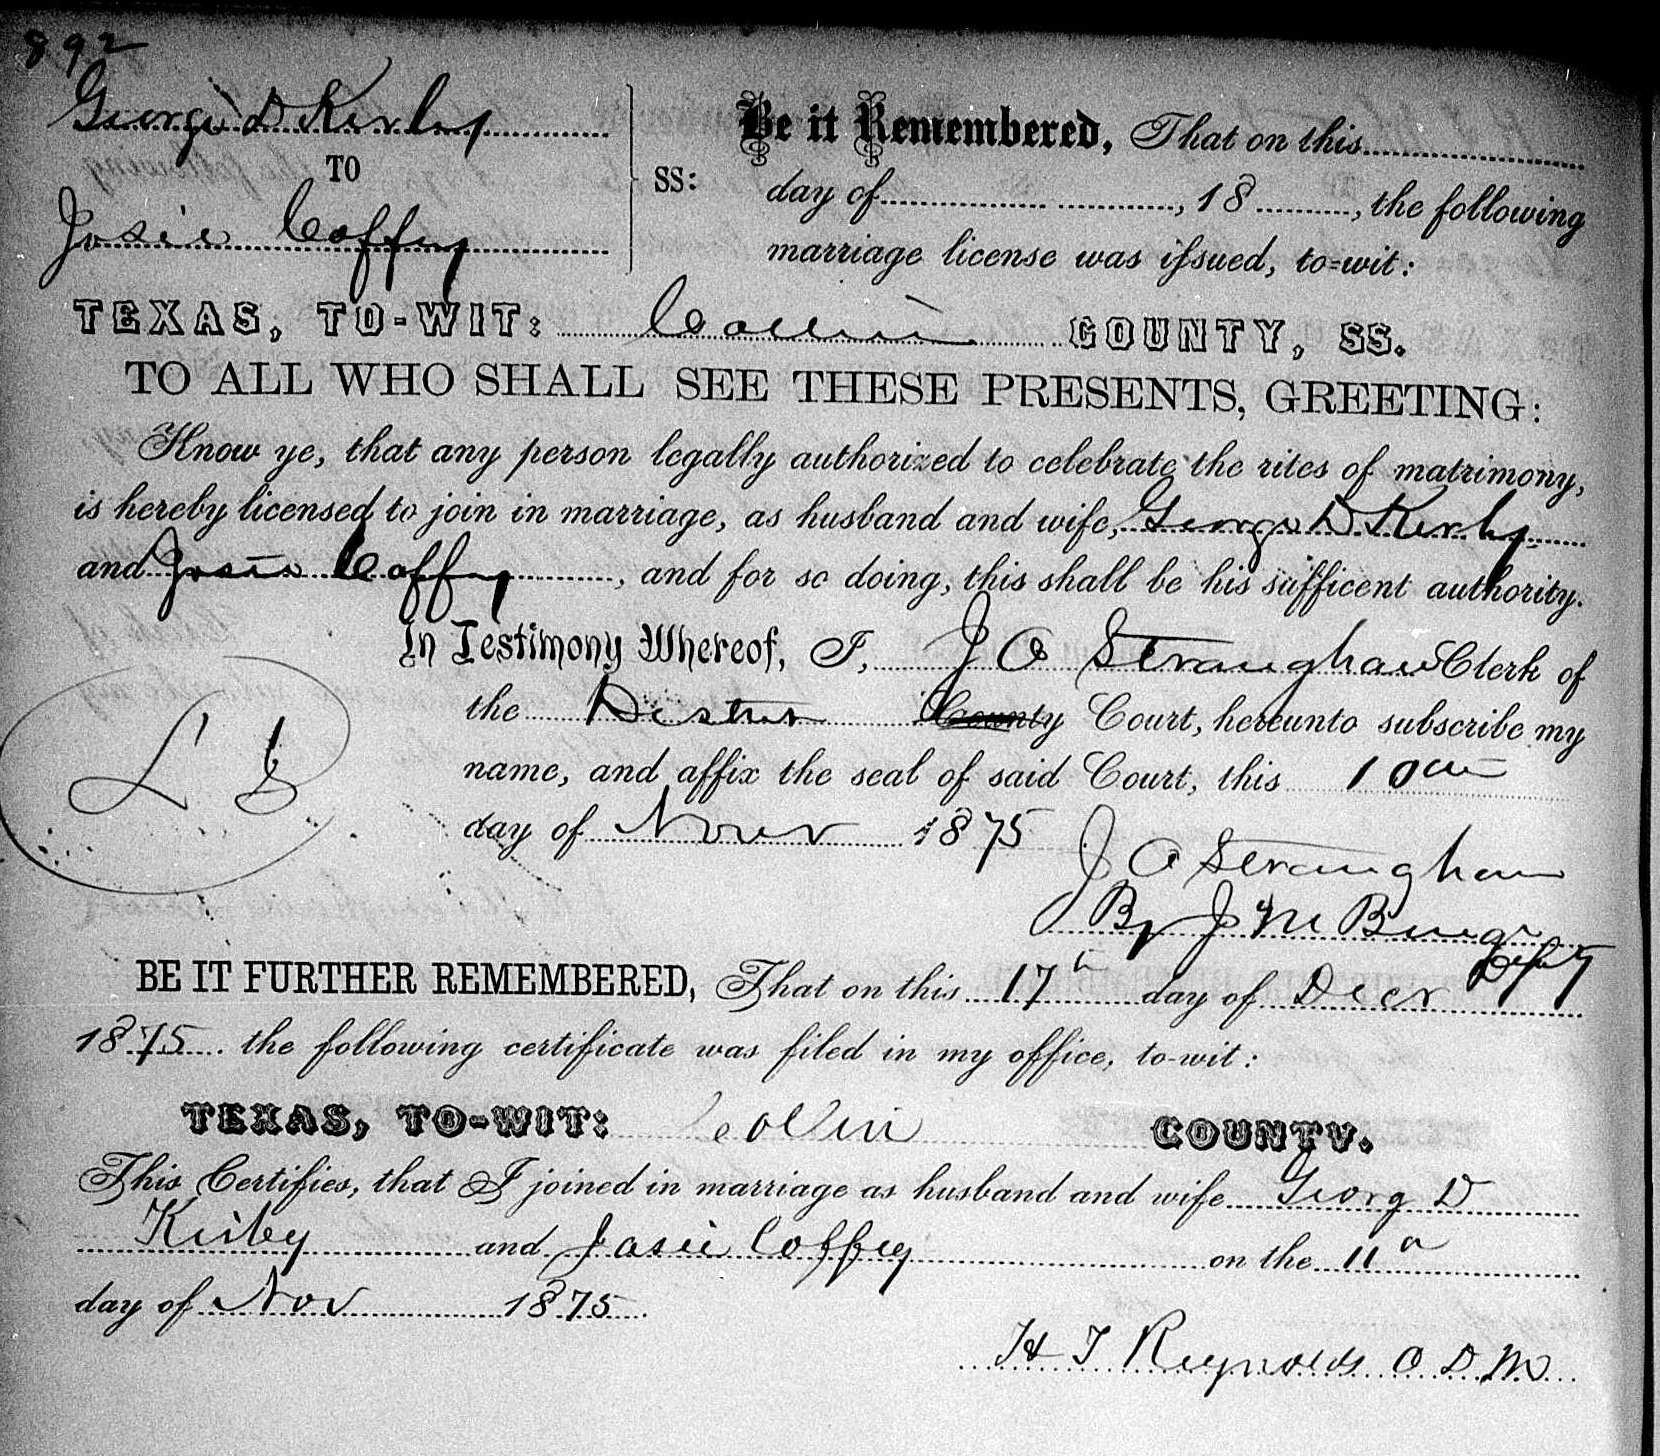 892
George D Kerby
TO
Josie Coffey
SS:
Be it Remembered, That on this
day of , 18 , the following
marriage license was issued, to-wit:
TEXAS, TO-WIT: Collin COUNTY, SS.
TO ALL WHO SHALL SEE THESE PRESENTS, GREETING:
Know ye, that any person legally authorized to celebrate the rites of matrimony,
is hereby licensed to join in marriage, as husband and wife, George D Kerby
and Josie Coffey , and for so doing, this shall be his sufficent authority.
In Testimony Whereof, I, J O Straughan Clerk of
the District County Court, hereunto subscribe my
name, and affix the seal of said Court, this 10th
day of Novr 1875
L S
J O Straughan
By J M Depty
BE IT FURTHER REMEMBERED, That on this 17th day of Decr
1875 the following certificate was filed in my office, to-wit:
TEXAS, TO-WIT: Collin COUNTY.
This Certifies, that I joined in marriage as husband and wife Georg D
Kirby and Josie Coffey on the 11th
day of Nov 1875
H T Reynolds O D M